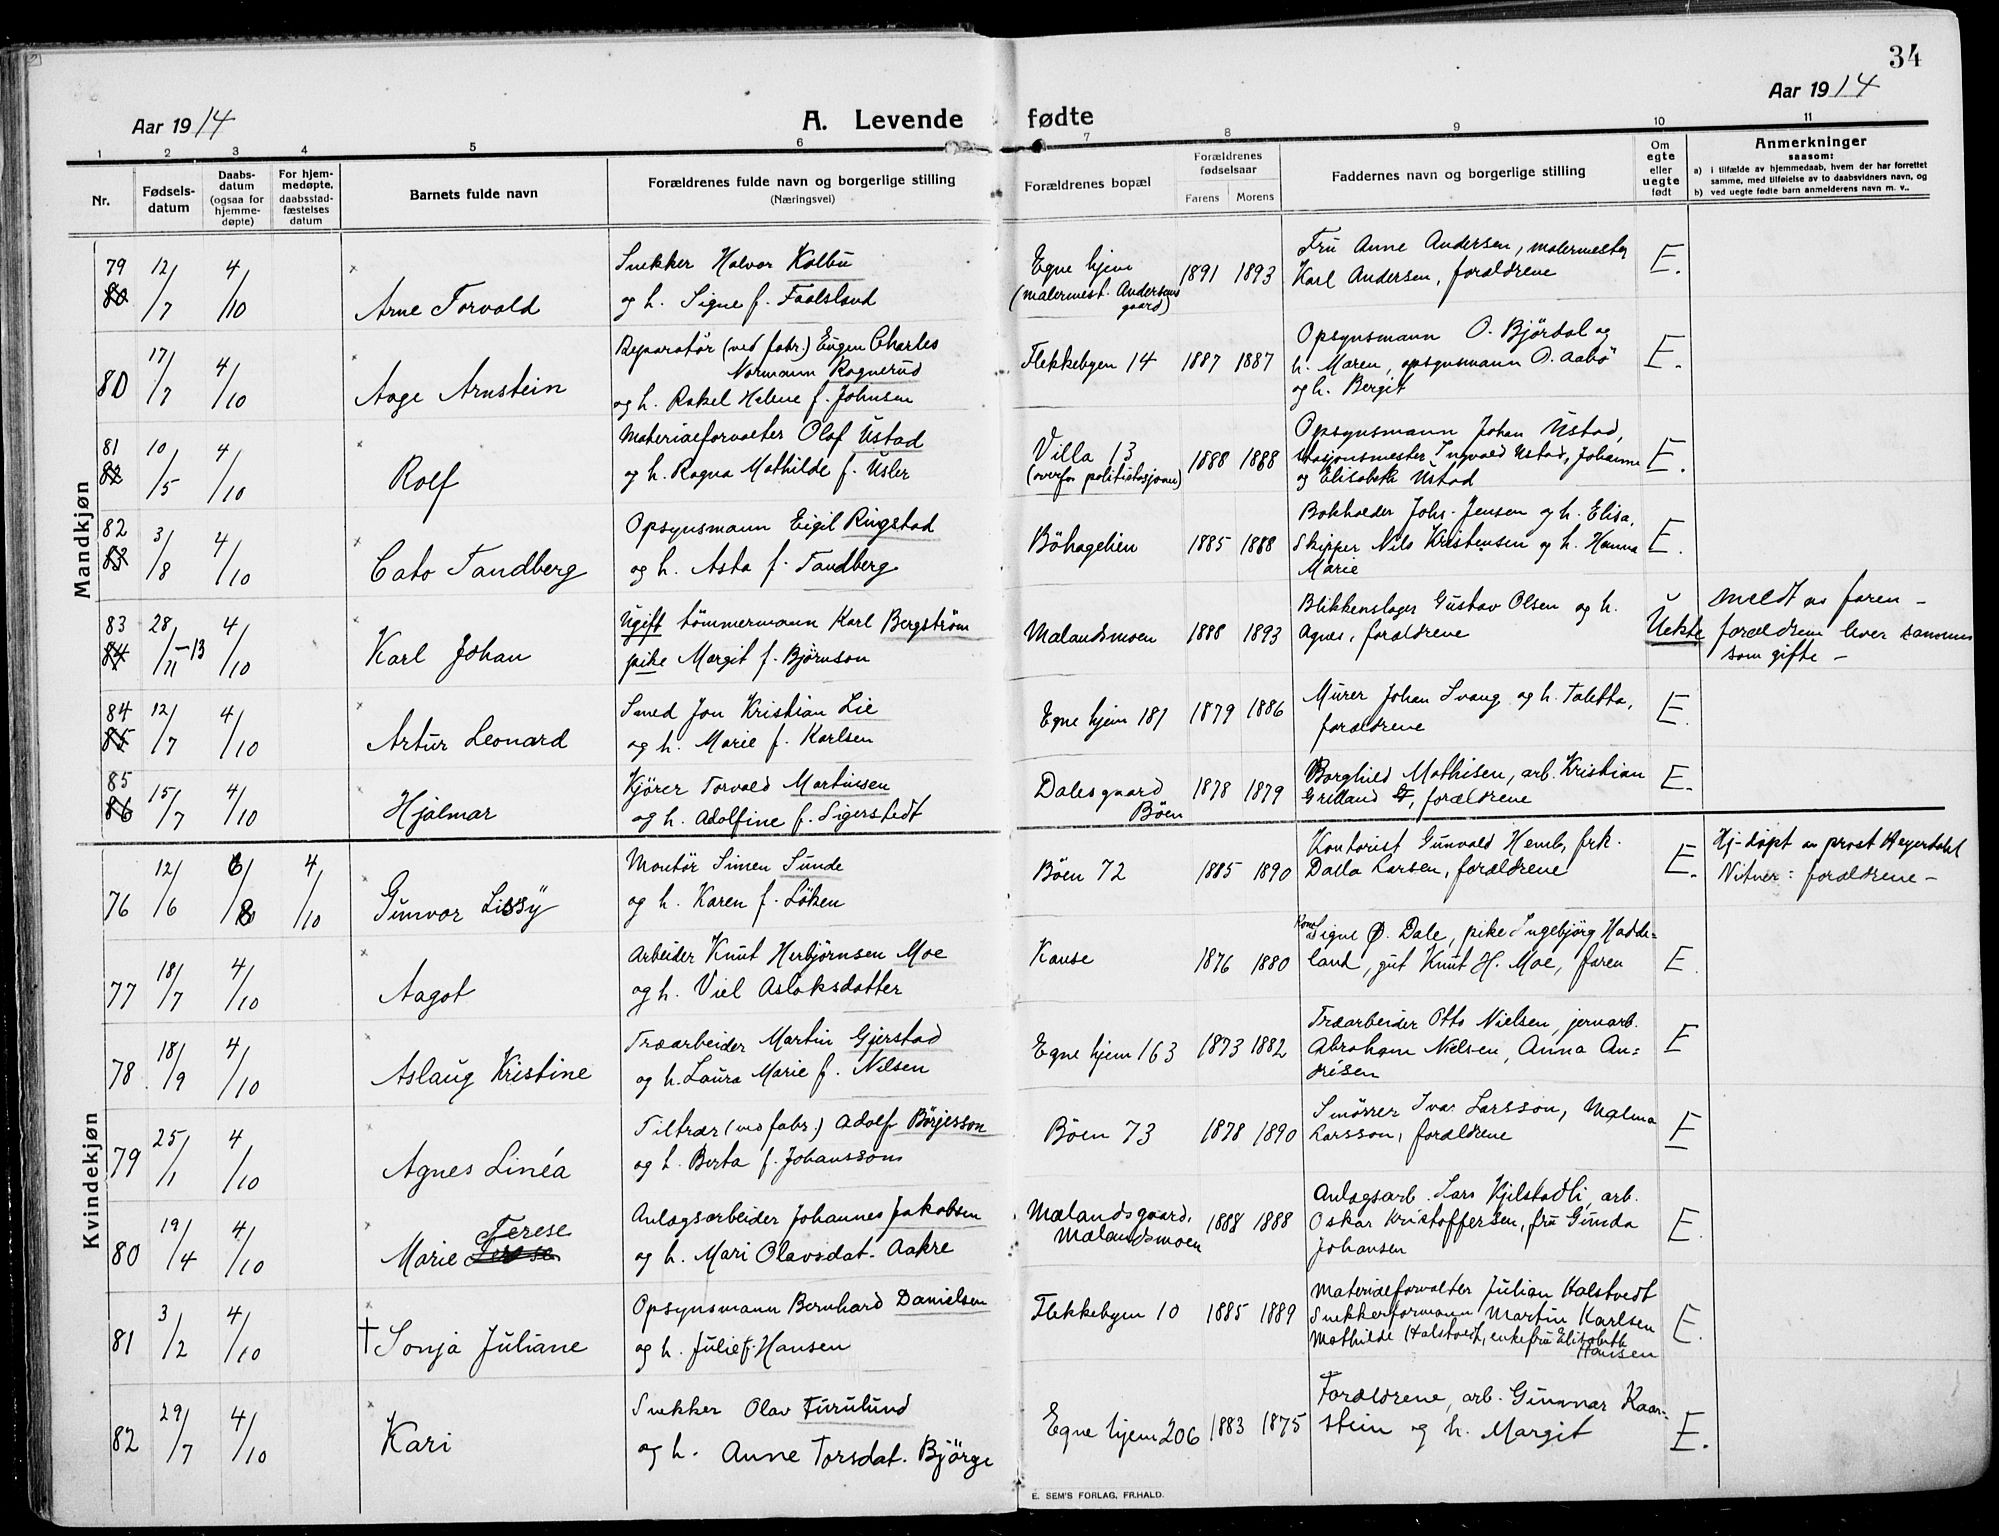 34
Aar 1914
A. Levende fødte
Aar 1914
1 2 3 4 5 6 7 8 9 10 11
Nr.
Fødsels-
datum
Daabs-
datum
(ogsaa for
hjemme-
døpte)
For hjem-
medøpte,
daabsstad-
fæstelses
datum
Barnets fulde navn
Forældrenes fulde navn og borgerlige stilling
(Næringsvei)
Forældrenes bopæl
Forældrenes
fødselsaar
Farens Morens
Faddernes navn og borgerlige stilling
Om
egte
eller
uegte
født
Anmerkninger
saasom:
a) i tilfælde av hjemmedaab, hvem der har forrettet
samme, med tilføielse av to daabsvidners navn, og
b) ved uegte fødte barn anmelderens navn m. v..
Mandkjøn
79
80
12/7 4/10
Arne Torvald
Snekker Halvor Kolbu
og h. Signe f. Faalsland
Egne hjem
(malermest. Andersens
gaard)
1891 1893
Fru Anne Andersen, malermester
Karl Andersen, forældrene
E.
80
17/7 4/10
Aage Arnstein
Reparatør (ved fabr.) Eugen Charles
Normann Rognerud
og h. Rakel Helene f. Johnsen
Flekkebyen 14
1887 1887
Opsynsmann O. Bjørdal og
h. Maren, opsynsmann O. Aabö
og h. Bergit
E.
81
82
10/5 4/10
Rolf
Materialforvalter Olaf Ustad
og h. Ragna Mathilde f. Usler
Villa 13
(overfor politistasjonen)
1888 1888
Opsynsmann Johan Ustad,
stasjonsmester Ingvald Ustad, Johanne
og Elisabeth Ustad
E.
82
83
3/8 4/10
Cato Tandberg
Opsynsmann Eigil Ringstad
og h. Asta f. Tandberg
Böhagelien
1885 1888
Bokholder Johs. Jensen og h. Elisa,
Skipper Nils Kristensen og h. Hanna
Marie
E.
83
84
28/11-13 4/10
Karl Johan
Ugift tömmermann Karl Bergström
pike Margit f. Björnson
Mælandsmoen
1888 1893
Blikkenslager Gustav Olsen og h.
Agnes, forældrene
Uekte
Meldt av faren –
forældrene lever sammen
som gifte –
84
85
12/7 4/10
Artur Leonard
Smed Jon Kristian Lie
og h. Marie f. Karlsen
Egne hjem 181
1879 1886
Murer Johan Svang og h. Taletta,
forældrene
E.
85
86
15/7 4/10
Hjalmar
Kjörer Torvald Martinssen
og h. Adolfine f. Sigerstedt
Dalesgaard
Böen
1878 1879
Borghild Mathisen, arb. Kristian
Grelland, forældrene
E.
Kvindekjøn
76
12/6 6/8 4/10
Gunvor Lissy
Montör Simen Sunde
og h. Karen f. Löken
Böen 72
1885 1890
Kontorist Gunvald Hemb, frk.
Dalla Larsen, forældrene
E.
Hj-döpt av prost Heyerdahl
Vitner: forældrene –
77
18/7 4/10
Aagot
Arbeider Knut Herbjörnsen Moe
og h. Viel Aslaksdatter
Kause
1876 1880
Kone Signe Ø. Dale, pike Ingebjörg Hadde-
land, gut Knut H. Moe, faren
E.
78
18/9 4/10
Aslaug Kristine
Træarbeider Martin Gjerstad
og h. Laura Marie f. Nilsen
Egne hjem 163
1873 1882
Træarbeider Otto Nielsen, jernarb.
Abraham Nielsen, Anna An-
dresen
E
79
25/1 4/10
Agnes Linéa
Filtrær (ved fabr.) Adolf Börjesson
og h. Berta f. Johansson
Böen 73
1878 1890
Smörrer Ivar Larsson, Malma
Larsson, forældrene
E
80
19/4 4/10
Terese
Marie
Anlægsarbeider Johannes Jakobsen
og h. Mari Olavsdat. Aakre
Mælandsgaard,
Mælandsmoen
1888 1888
Anlægsarb. Lars Kjelstadli, arb.
Oskar Kristoffersen, fru Gunda
Johansen
E.
81
3/2 4/10
† Sonja Juliane
Opsynsmann Bernhard Danielsen
og h. Julie f. Hansen
Flekkebyen 10
1885 1889
Materialforvalter Julian Halstvedt
Snekkerformann Martin Karlsen
Mathilde Halstvedt, enkefru Elisabeth
Hansen
E.
82
29/7 4/10
Kari
Snekker Olav Furulund
og h. Anne Torsdat. Björge
Egne hjem 206
1883 1875
Forældrene, arb. Gunnar Kaar-
stein og h. Margit
E.
E. SEM'S FORLAG, FR.HALD.